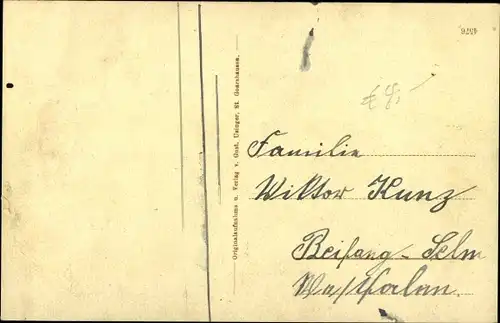 Originalaufnahme u. Verlag v. Gust. Usinger, St. Goarshausen.
Familie
Wiktor Kunz
Beifang - Selm
Westfalen.